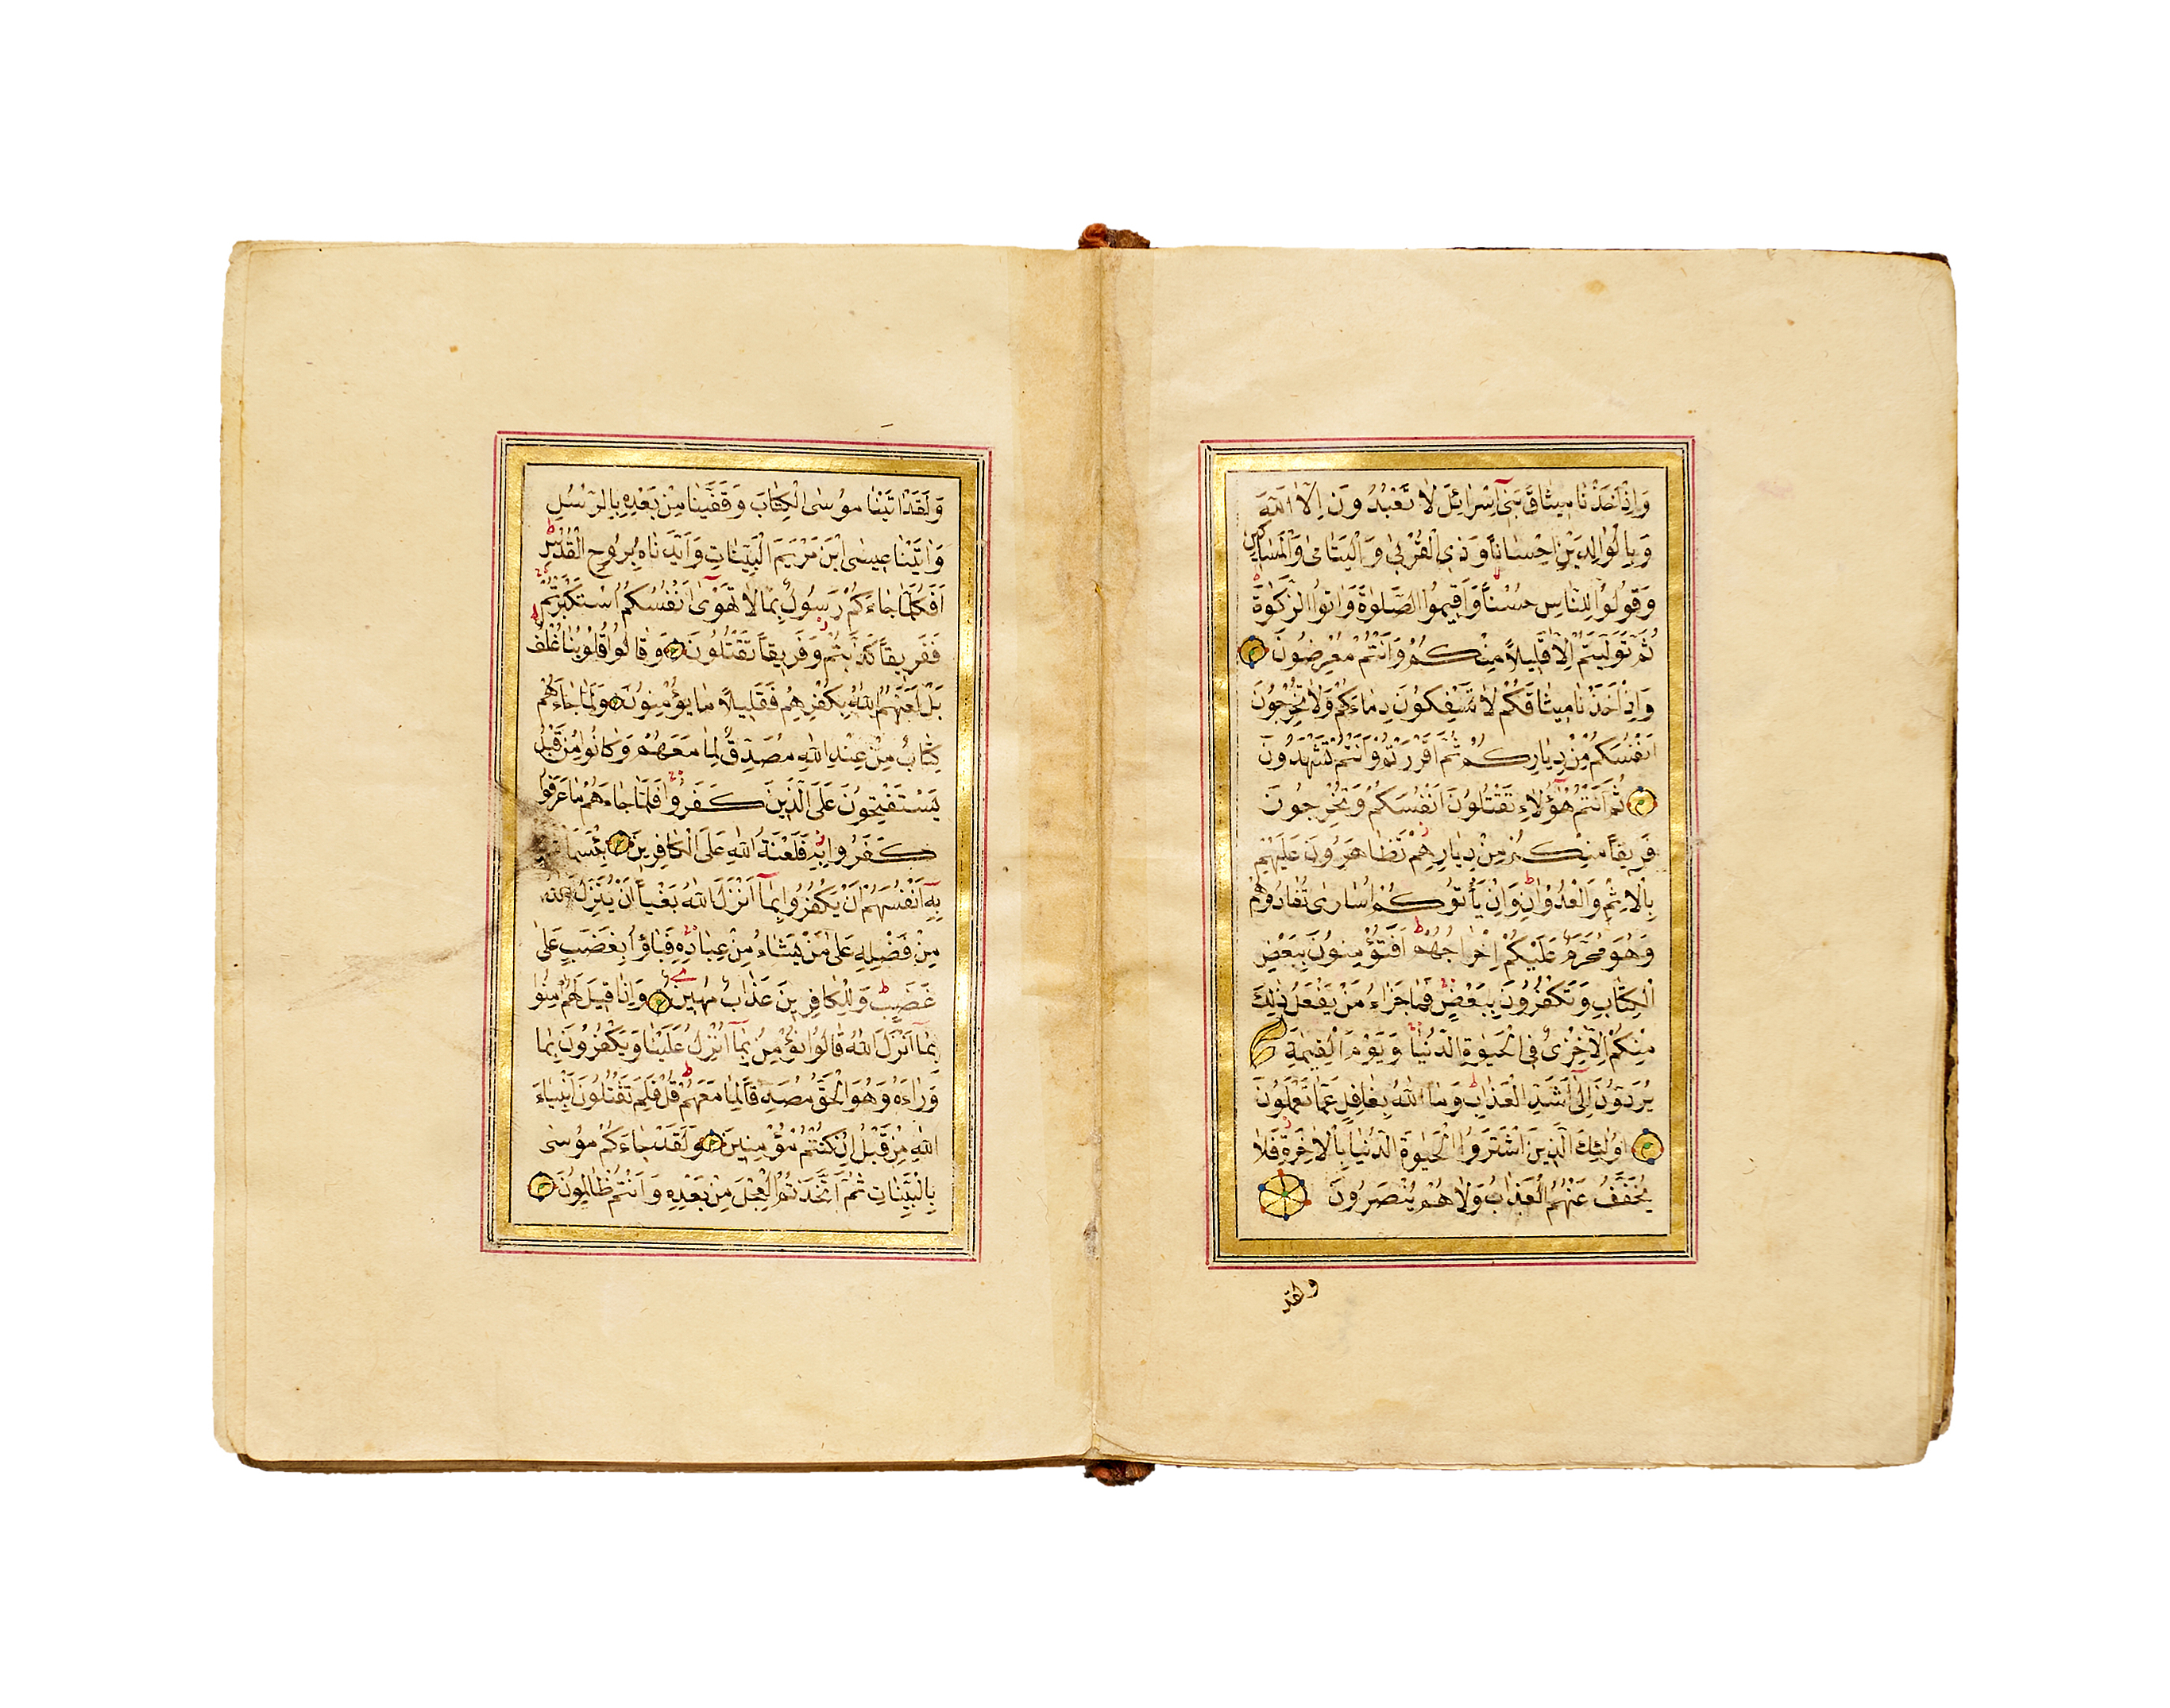 وَاِذْ اَخَذْنَا مِيثَاقَ بَنِىٓ اِسْرَائِلَ لَا تَعْبُدُونَ اِلَّا اللّٰهَ
وَبِالْوَالِدَيْنِ اِحْسَانًا وَذِى الْقُرْبٰى وَالْيَتَامٰى وَالْمَسَاكِينِ
وَقُولُوا لِلنَّاسِ حُسْنًا وَاَقِيمُوا الصَّلٰوةَ وَاٰتُوا الزَّكٰوةَ
ثُمَّ تَوَلَّيْتُمْ اِلَّا قَلِيلًا مِنْكُمْ وَاَنْتُمْ مُعْرِضُونَ
وَاِذْ اَخَذْنَا مِيثَاقَكُمْ لَا تَسْفِكُونَ دِمَاءَكُمْ وَلَا تُخْرِجُونَ
اَنْفُسَكُمْ مِنْ دِيَارِكُمْ ثُمَّ اَقْرَرْتُمْ وَاَنْتُمْ تَشْهَدُونَ
ثُمَّ اَنْتُمْ هٰٓؤُلَاءِ تَقْتُلُونَ اَنْفُسَكُمْ وَتُخْرِجُونَ
فَرِيقًا مِنْكُمْ مِنْ دِيَارِهِمْ تَظَاهَرُونَ عَلَيْهِمْ
بِالْاِثْمِ وَالْعُدْوَانِ ط وَاِنْ يَأْتُوكُمْ اُسَارٰى تُفَادُوهُمْ
وَهُوَ مُحَرَّمٌ عَلَيْكُمْ اِخْرَاجُهُمْ ط اَفَتُؤْمِنُونَ بِبَعْضِ
الْكِتَابِ وَتَكْفُرُونَ بِبَعْضٍ ج فَمَا جَزَاءُ مَنْ يَفْعَلُ ذٰلِكَ
مِنْكُمْ اِلَّا خِزْىٌ فِى الْحَيٰوةِ الدُّنْيَا ج وَيَوْمَ الْقِيٰمَةِ
يُرَدُّونَ اِلٰٓى اَشَدِّ الْعَذَابِ ط وَمَا اللّٰهُ بِغَافِلٍ عَمَّا تَعْمَلُونَ
اُولٰئِكَ الَّذِينَ اشْتَرَوُا الْحَيٰوةَ الدُّنْيَا بِالْاٰخِرَةِ ز فَلَا
يُخَفَّفُ عَنْهُمُ الْعَذَابُ وَلَا هُمْ يُنْصَرُونَ
ولقد
وَلَقَدْ اٰتَيْنَا مُوسَى الْكِتَابَ وَقَفَّيْنَا مِنْ بَعْدِهِ بِالرُّسُلِ
وَاٰتَيْنَا عِيسَى ابْنَ مَرْيَمَ الْبَيِّنَاتِ وَاَيَّدْنَاهُ بِرُوحِ الْقُدُسِ ط
اَفَكُلَّمَا جَاءَكُمْ رَسُولٌ بِمَا لَا تَهْوٰٓى اَنْفُسُكُمُ اسْتَكْبَرْتُمْ ج
فَفَرِيقًا كَذَّبْتُمْ ز وَفَرِيقًا تَقْتُلُونَ وَقَالُوا قُلُوبُنَا غُلْفٌ ط
بَلْ لَعَنَهُمُ اللّٰهُ بِكُفْرِهِمْ فَقَلِيلًا مَا يُؤْمِنُونَ وَلَمَّا جَاءَهُمْ
كِتَابٌ مِنْ عِنْدِ اللّٰهِ مُصَدِّقٌ لِمَا مَعَهُمْ وَكَانُوا مِنْ قَبْلُ
يَسْتَفْتِحُونَ عَلَى الَّذِينَ كَفَرُوا ج فَلَمَّا جَاءَهُمْ مَا عَرَفُوا
كَفَرُوا بِهِ ز فَلَعْنَةُ اللّٰهِ عَلَى الْكَافِرِينَ بِئْسَمَا
بِهِٓ اَنْفُسَهُمْ اَنْ يَكْفُرُوا بِمَآ اَنْزَلَ اللّٰهُ بَغْيًا اَنْ يُنَزِّلَ اللّٰهُ
مِنْ فَضْلِهِ عَلٰى مَنْ يَشَاءُ مِنْ عِبَادِهِ ج فَبَاؤُ بِغَضَبٍ عَلٰى
غَضَبٍ ط وَلِلْكَافِرِينَ عَذَابٌ مُهِينٌ وَاِذَا قِيلَ لَهُمْ اٰمِنُوا
بِمَآ اَنْزَلَ اللّٰهُ قَالُوا نُؤْمِنُ بِمَآ اُنْزِلَ عَلَيْنَا وَيَكْفُرُونَ بِمَا
وَرَاءَهُ وَهُوَ الْحَقُّ مُصَدِّقًا لِمَا مَعَهُمْ ط قُلْ فَلِمَ تَقْتُلُونَ اَنْبِيَاءَ
اللّٰهِ مِنْ قَبْلُ اِنْ كُنْتُمْ مُؤْمِنِينَ وَلَقَدْ جَاءَكُمْ مُوسٰى
بِالْبَيِّنَاتِ ثُمَّ اتَّخَذْتُمُ الْعِجْلَ مِنْ بَعْدِهِ وَاَنْتُمْ ظَالِمُونَ